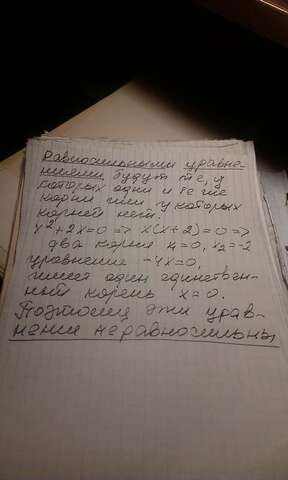 Равносильными уравне-
ниями будут те, у
которых одни и те же
корни или у которых
корней нет.
x²+2x=0 => x(x+2)=0 =>
два корня x₁=0, x₂=-2
уравнение -4x=0,
имеет один единствен-
ный корень x=0.
Поэтому эти урав-
нения неравносильны